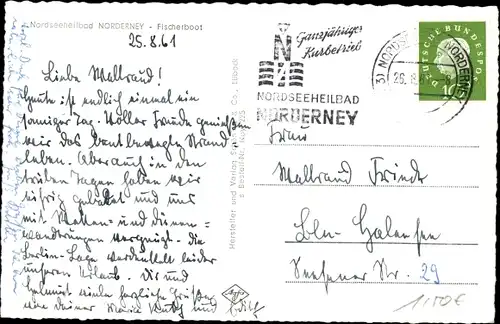 Nordseeheilbad NORDERNEY - Fischerboot
25.8.61
Liebe Waltraud!
Heute ist endlich einmal ein
sonniger Tag. Voller Freude genießen
wir das buntbewegte Strand
leben. Aber auch in den
trüben Tagen haben wir
eifrig gebadet und uns
mit Watten- und Dünen-
wanderungen vergnügt. Die
Berlin-Lage verdunkelt leider
unseren Urlaub. Dir und
Helmut viele herzliche Grüße
von Deiner Maria
Hersteller und Verlag
Bestell-Nr.
Agfa
Ganzjähriger
Kurbetrieb
N
NORDSEEHEILBAD
NORDERNEY
NORDERNEY
DEUTSCHE BUNDESPOST
10
Frau
Waltraud
Bln-Halensee
Seesener Str. 29